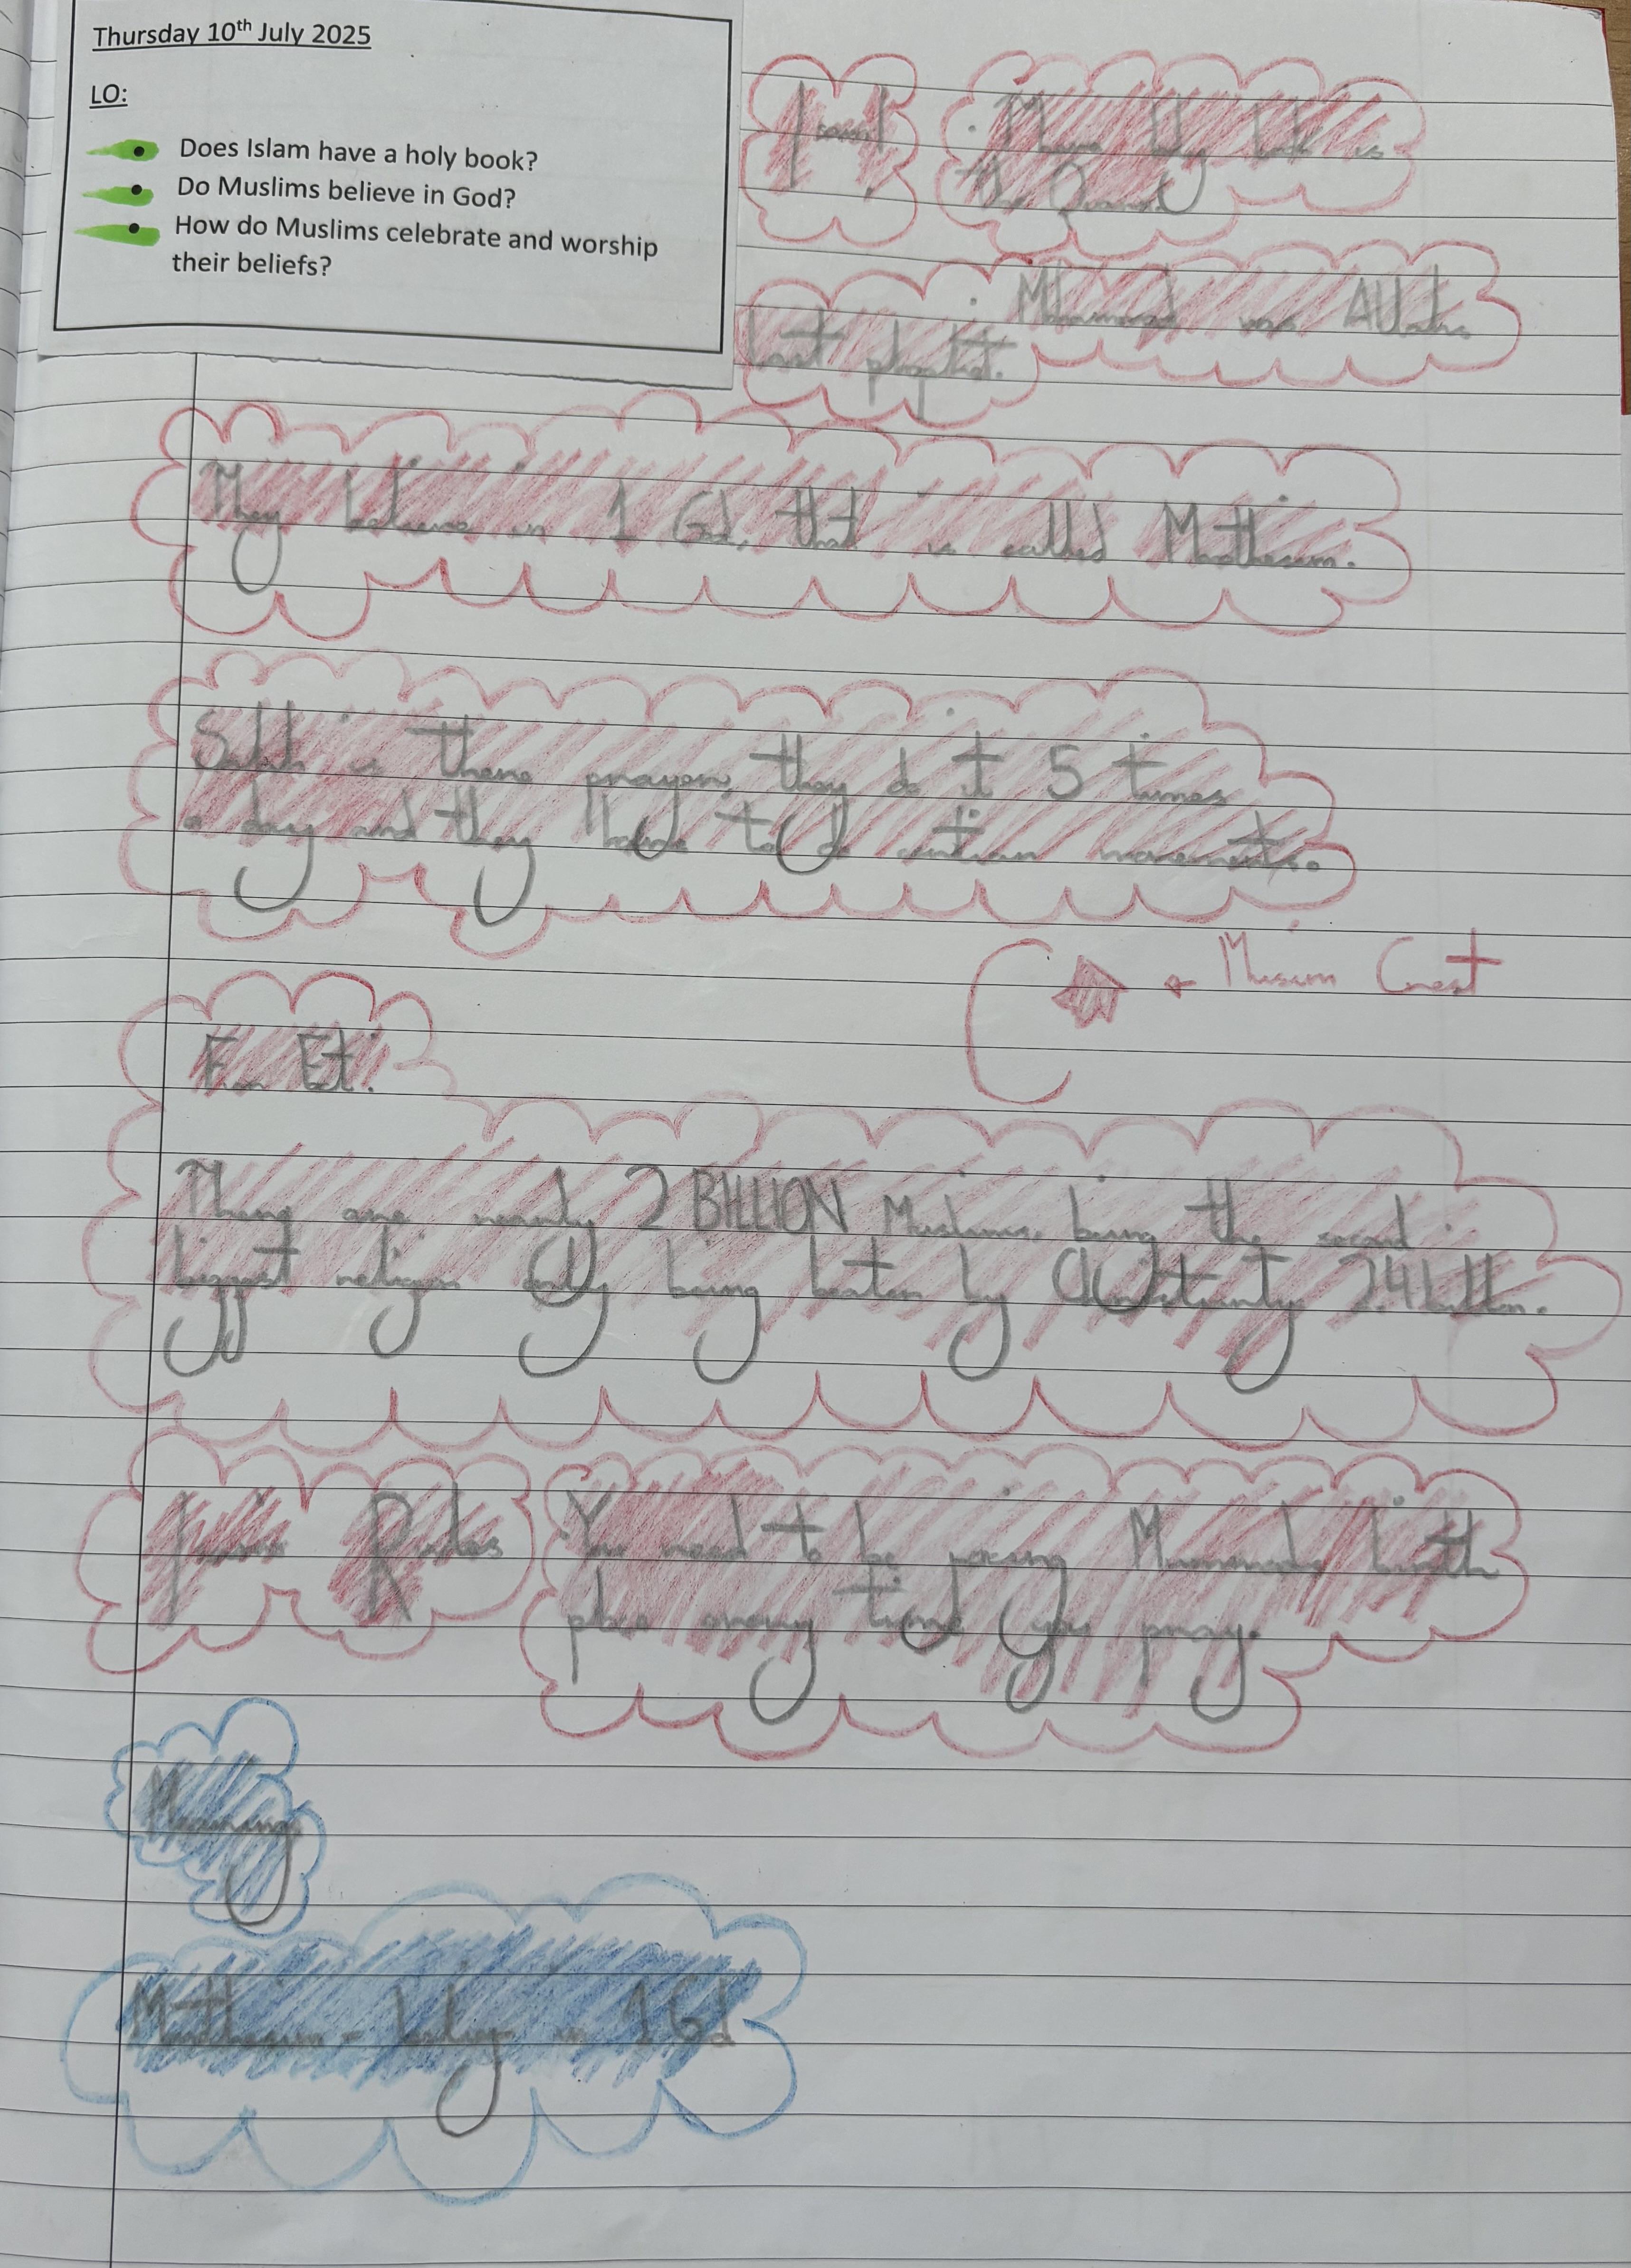 Thursday 10th July 2025
LO:
Does Islam have a holy book?
Do Muslims believe in God?
How do Muslims celebrate and worship
their beliefs?
Islam!
holy book is
the
was Allahs
last
They believe in 1 God, that is called
Salah is there prayer, they do it 5 times
a day and they have to do movements.
Crest
Fun
are nearly 2 BILLION Muslims, being the second
biggest religion only being beaten by 2.4 billion.
Rules
You need to be facing birth
place every time you pray.
Meaning
in 1 God